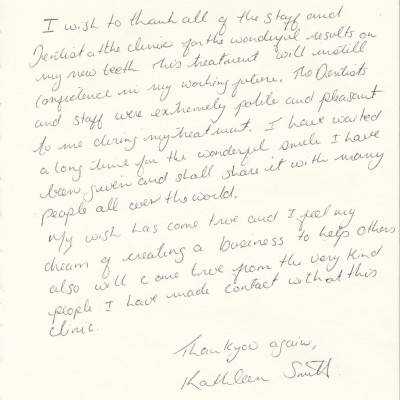 I wish to thank all of the staff and
Dentist at the clinic for the wonderful results on
my new teeth This treatment will instill
confidence in my working future. The Dentists
and staff were extremely polite and pleasant
to me during my treatment. I have waited
a long time for the wonderful smile I have
been given and shall share it with many
people all over the world.
My wish has come true and I feel my
dream of creating a business to help others
also will come true from the very kind
people I have made contact with at this
clinic.
Thankyou again,
Kathleen Smith.